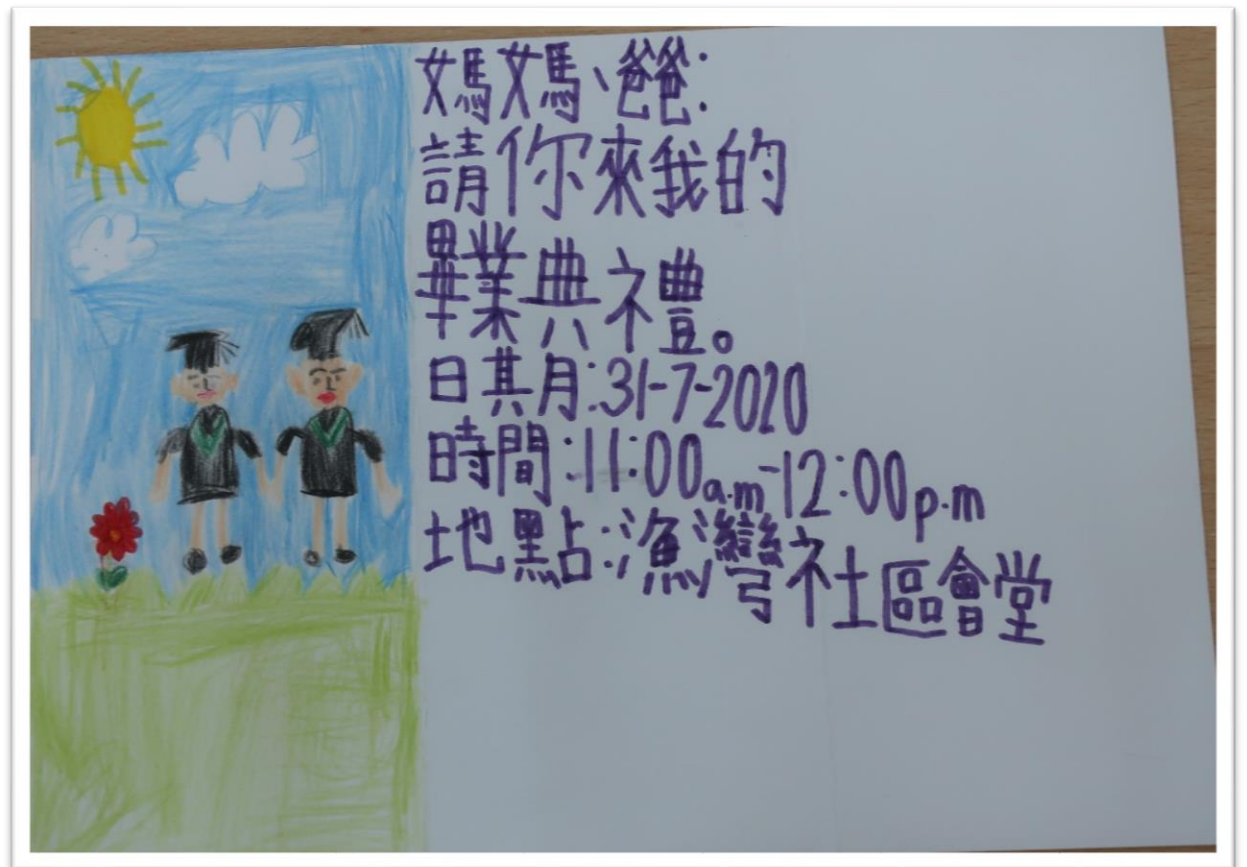 媽媽、爸爸:
請你來我的
畢業典禮。
日期:31-7-2020
時間:11:00a.m-12:00p.m
地點:漁灣社區會堂